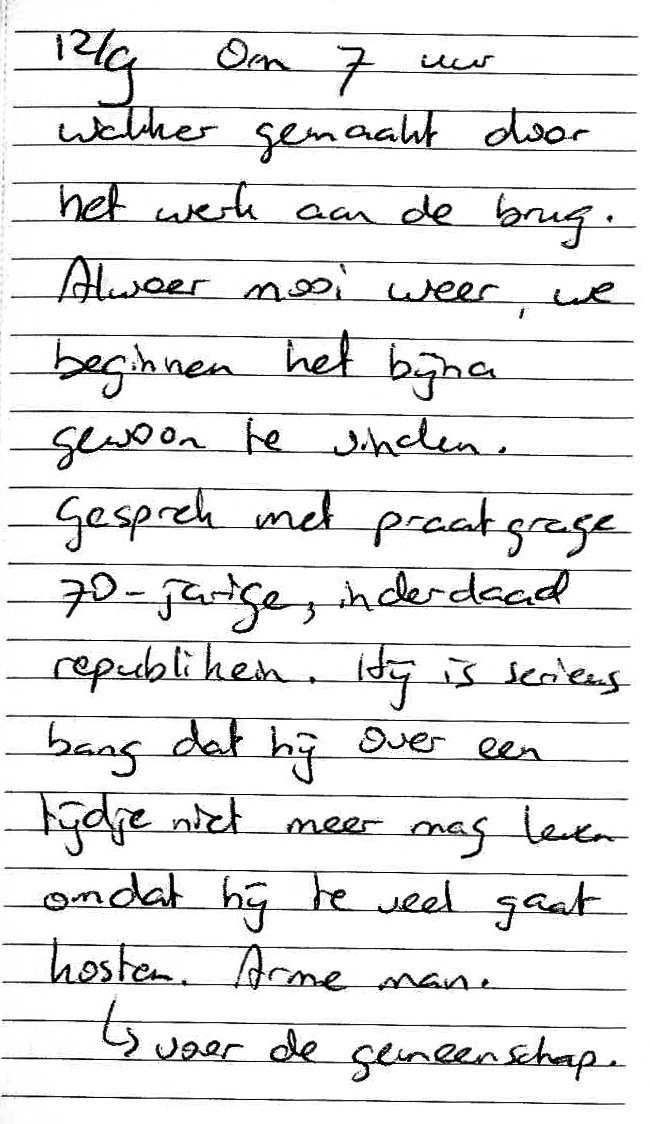 12/9 Om 7 uur
wakker gemaakt door
het werk aan de brug.
Alweer mooi weer, we
beginnen het bijna
gewoon te vinden.
Gesprek met praatgrage
70-jarige, inderdaad
republikein. Hij is serieus
bang dat hij over een
tijdje niet meer mag leven
omdat hij te veel gaat
kosten. Arme man.
↳ voor de gemeenschap.